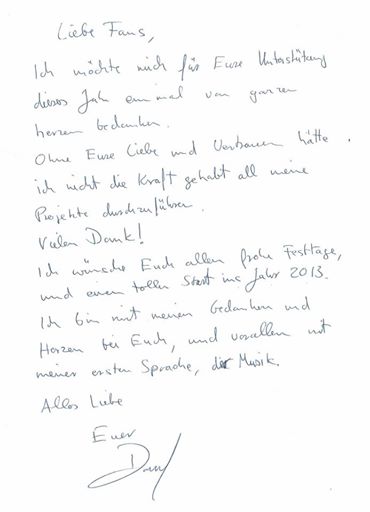 Liebe Fans,
Ich möchte mich für Eure Unterstützung
dieses Jahr einmal von ganzen
herzen bedanken.
Ohne Eure Liebe und Vertrauen hätte
ich nicht die Kraft gehabt all meine
Projekte durchzuführen.
Vielen Dank!
Ich wünsche Euch allen frohe Festtage,
und einen tollen Start ins Jahr 2013.
Ich bin mit meinen Gedanken und
Herzen bei Euch, und vorallem mit
meiner ersten Sprache, der Musik.
Alles Liebe
Euer